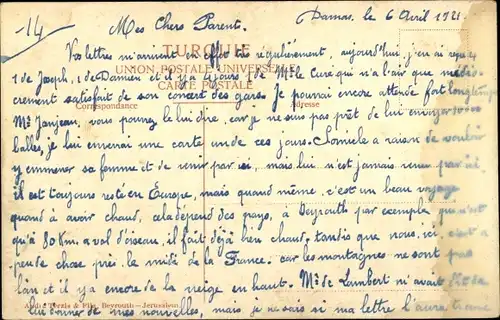 14
Damas, le 6 Avril 1921.
Mes Chers Parents.
TURQUIE
Vos lettres m'arrivent en effet très régulièrement, aujourd'hui j'en ai reçu
UNION POSTALE UNIVERSELLE
1 de Joseph, 1 de Damien et il y a jours 1 de Mr le Curé qui n'a l'air que médio
CARTE POSTALE
crement satisfait de son concert des gars. Je pourrai encore attendre fort longtemps
Correspondance
Adresse
Mr Janjean, vous pourrez le lui dire, car je ne suis pas prêt de lui envoyer
balles, je lui enverrai une carte un de ces jours. a raison de vouloir
y emmener sa femme et de venir par ici, mais lui n'est jamais venu par ici.
il est toujours resté en Europe, mais quand même, c'est un beau voyage
quand à avoir chaud, cela dépend des pays, à Beyrouth par exemple qui n'est
qu'à 80 Km. à vol d'oiseau, il fait déjà bien chaud, tandis que nous, ici
peu de chose près le midi de la France. car les montagnes ne sont pas
loin et il y a encore de la neige en haut. Mr de Lambert n'avait
André Terzis & Fils, Beyrouth—Jérusalem.
lui donner de mes nouvelles, mais je ne sais si ma lettre l'aura